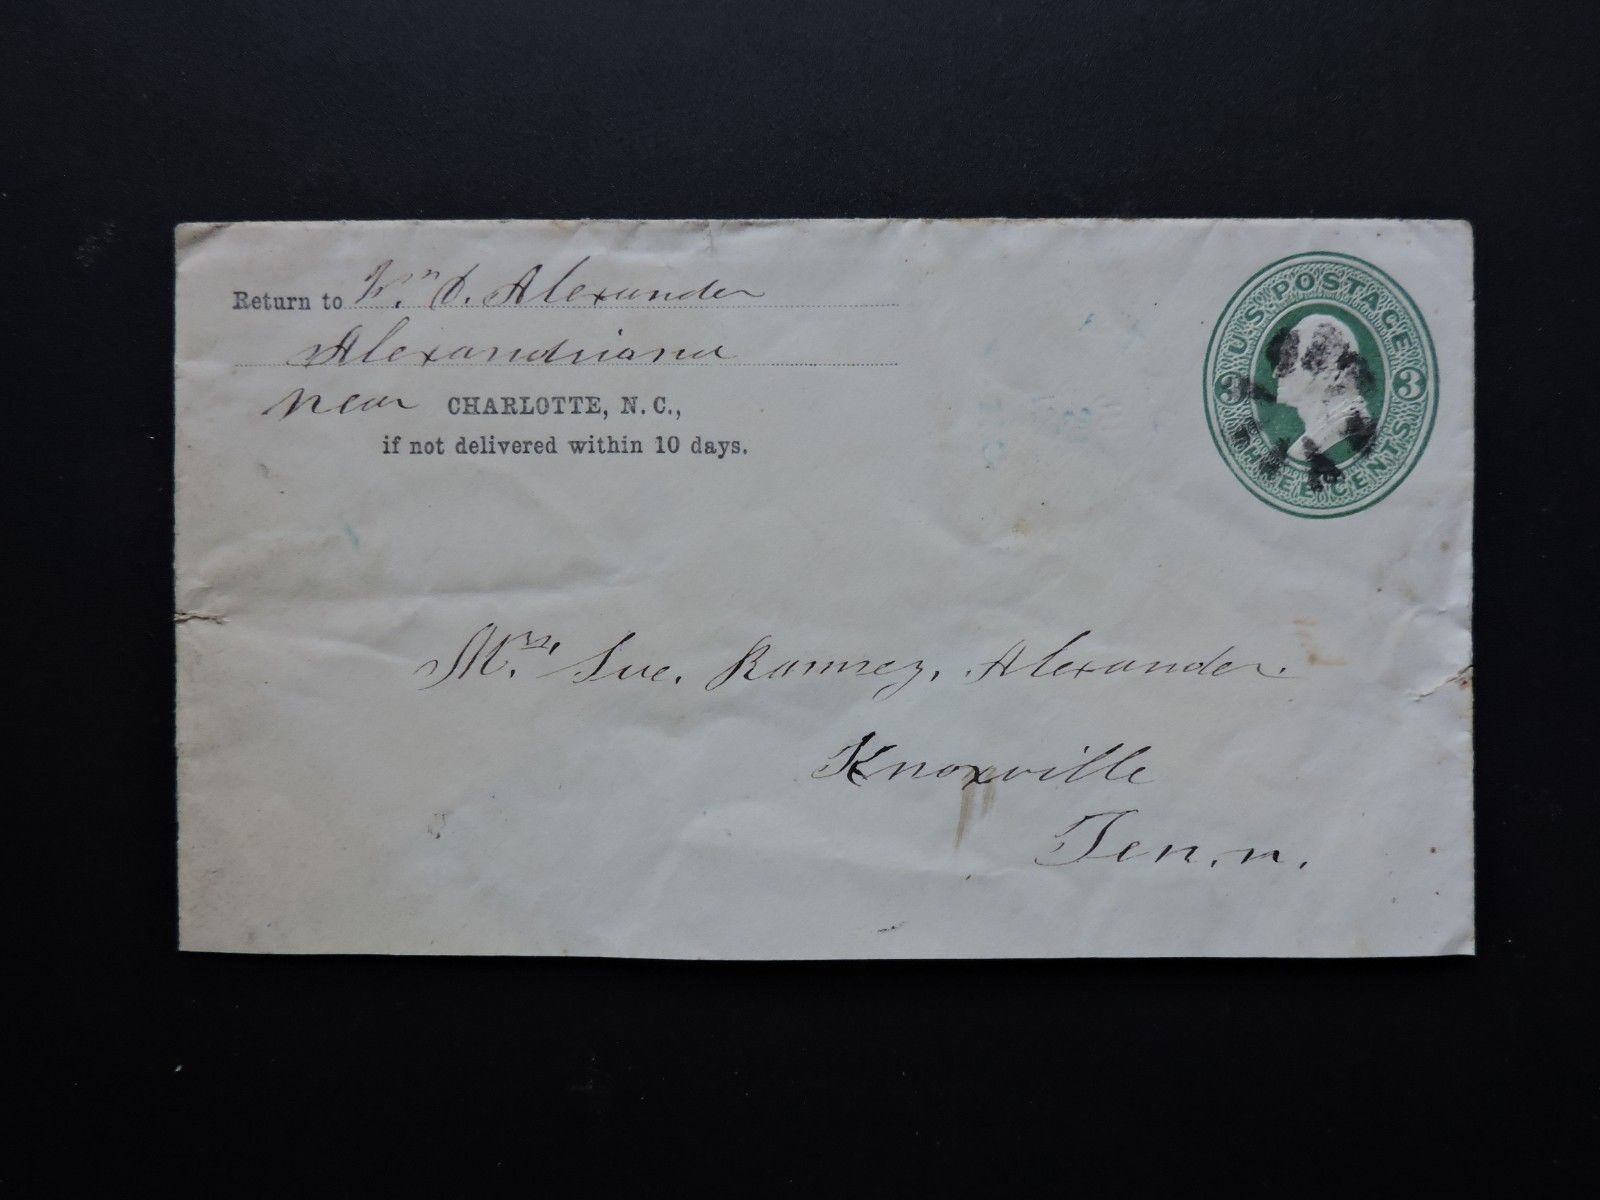 Return to Wm. D. Alexander
Alexandriana
near CHARLOTTE, N. C.,
if not delivered within 10 days.
U.S. POSTAGE
3 3
THREE CENTS
Mrs. Sue. Ramsey, Alexander.
Knoxville
Tenn.